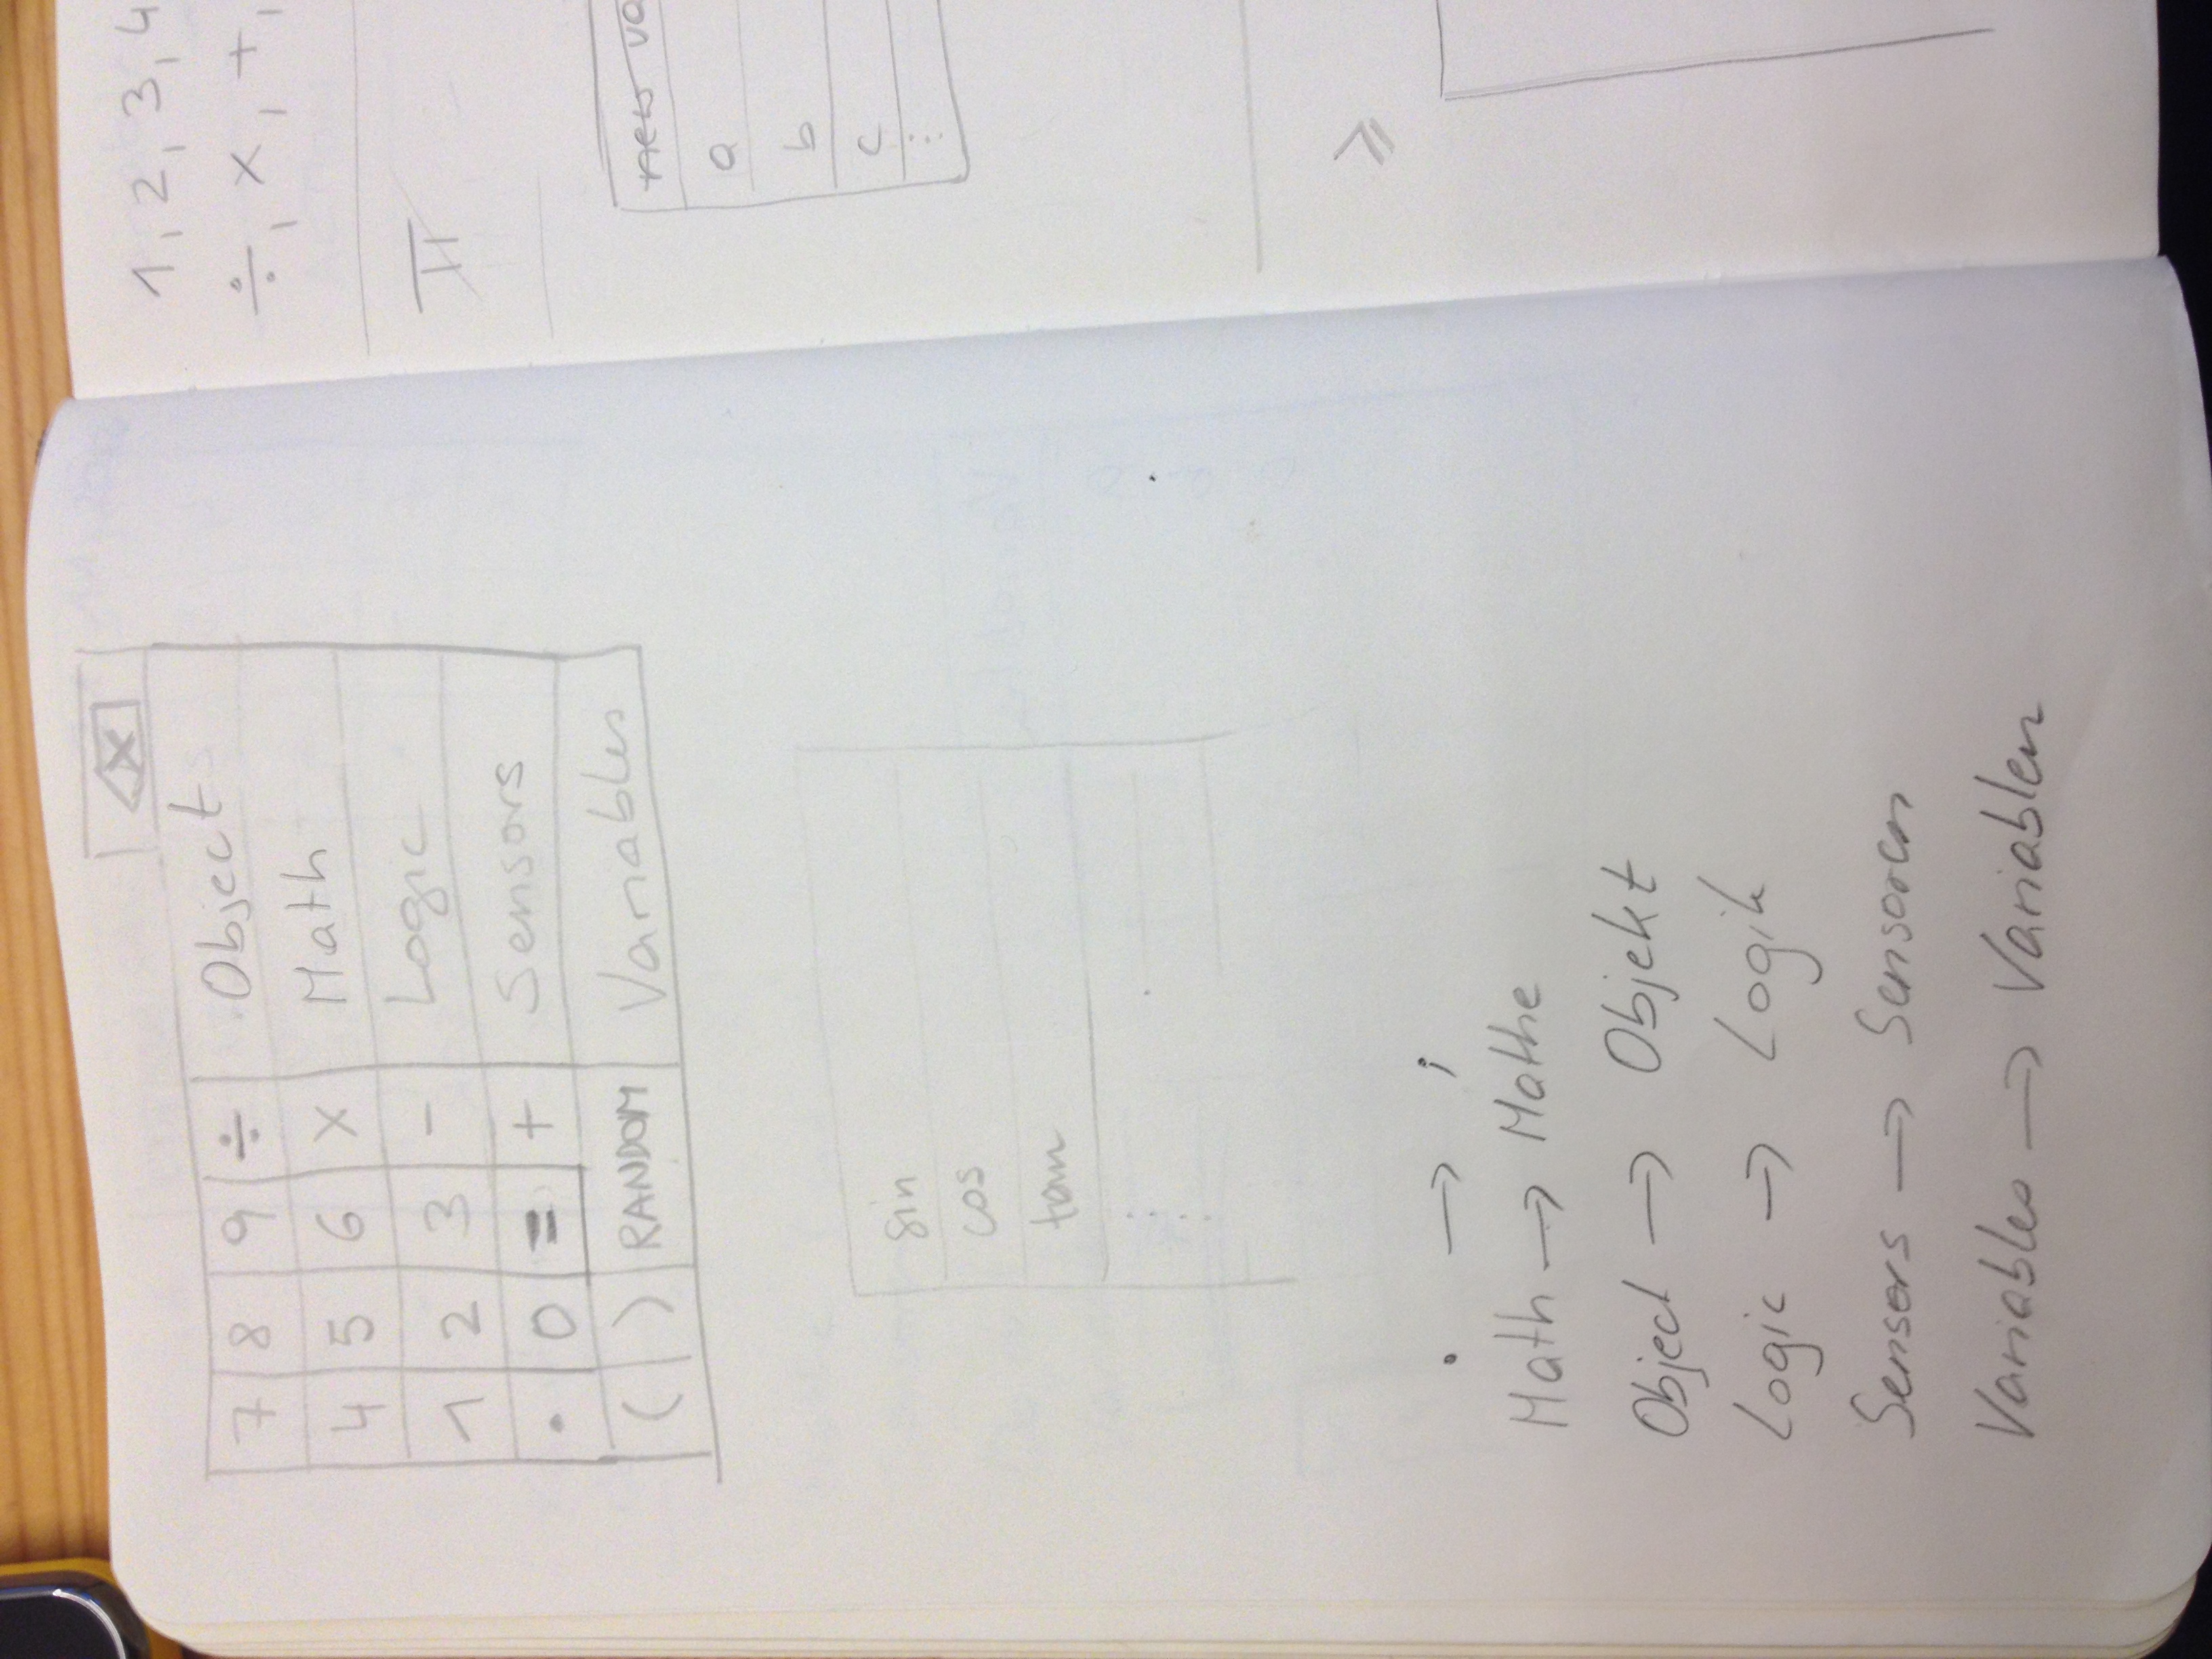 7 8 9 ÷ Object
4 5 6 × Math
1 2 3 - Logic
. 0 = + Sensors
( ) RANDOM Variables
sin
cos
tan
⋮
. → ;
Math → Mathe
Object → Objekt
Logic → Logik
Sensors → Sensoren
Variables → Variablen
1, 2, 3, 4
÷, ×, +,
π
new va
a
b
c
⋮
≥